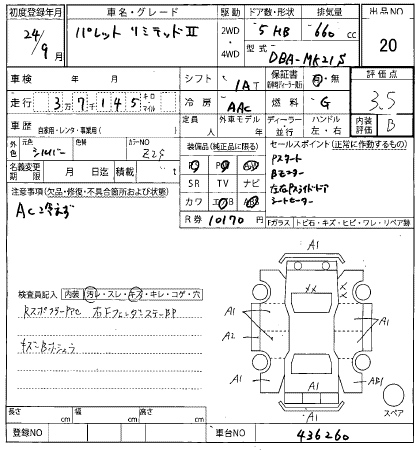 初度登録年月 車名・グレード 駆動 ドア数・形状 排気量 出品NO
24年 9月 パレット リミテッドⅡ 2WD・4WD 5 HB 660 cc 20
型式 DBA-MK21S
車検 年 月 シフト IAT 保証書 有・無 評価点
走行 3万7千145 キロ マイル 冷房 AAC 燃料 G 3.5
車歴 自家用・レンタ・事業用( ) 定員 人 外車モデル 年 ディーラー 並行 ハンドル 左・右 内装評価 B
外色 元色 シルバー 色替 カラーNO Z2S
装備品(純正品に限る) セールスポイント(正常に作動するもの)
名義変更期限 月 日迄 積載 t
SR TV ナビ
カワ
Pスタート
左右Pスライドドア
シートヒーター
注意事項(欠品・修復・不具合箇所および状態)
AC冷えず
R券 10170 円
Fガラス トビ石・キズ・ヒビ・ワレ・リペア跡
検査員記入 内装 汚レ・スレ・キズ・キレ・コゲ・穴
A1
A1
A2
A1
A1
A1
A1
A1
スペア
長さ cm 幅 cm 高さ cm
登録NO 車台NO 436260